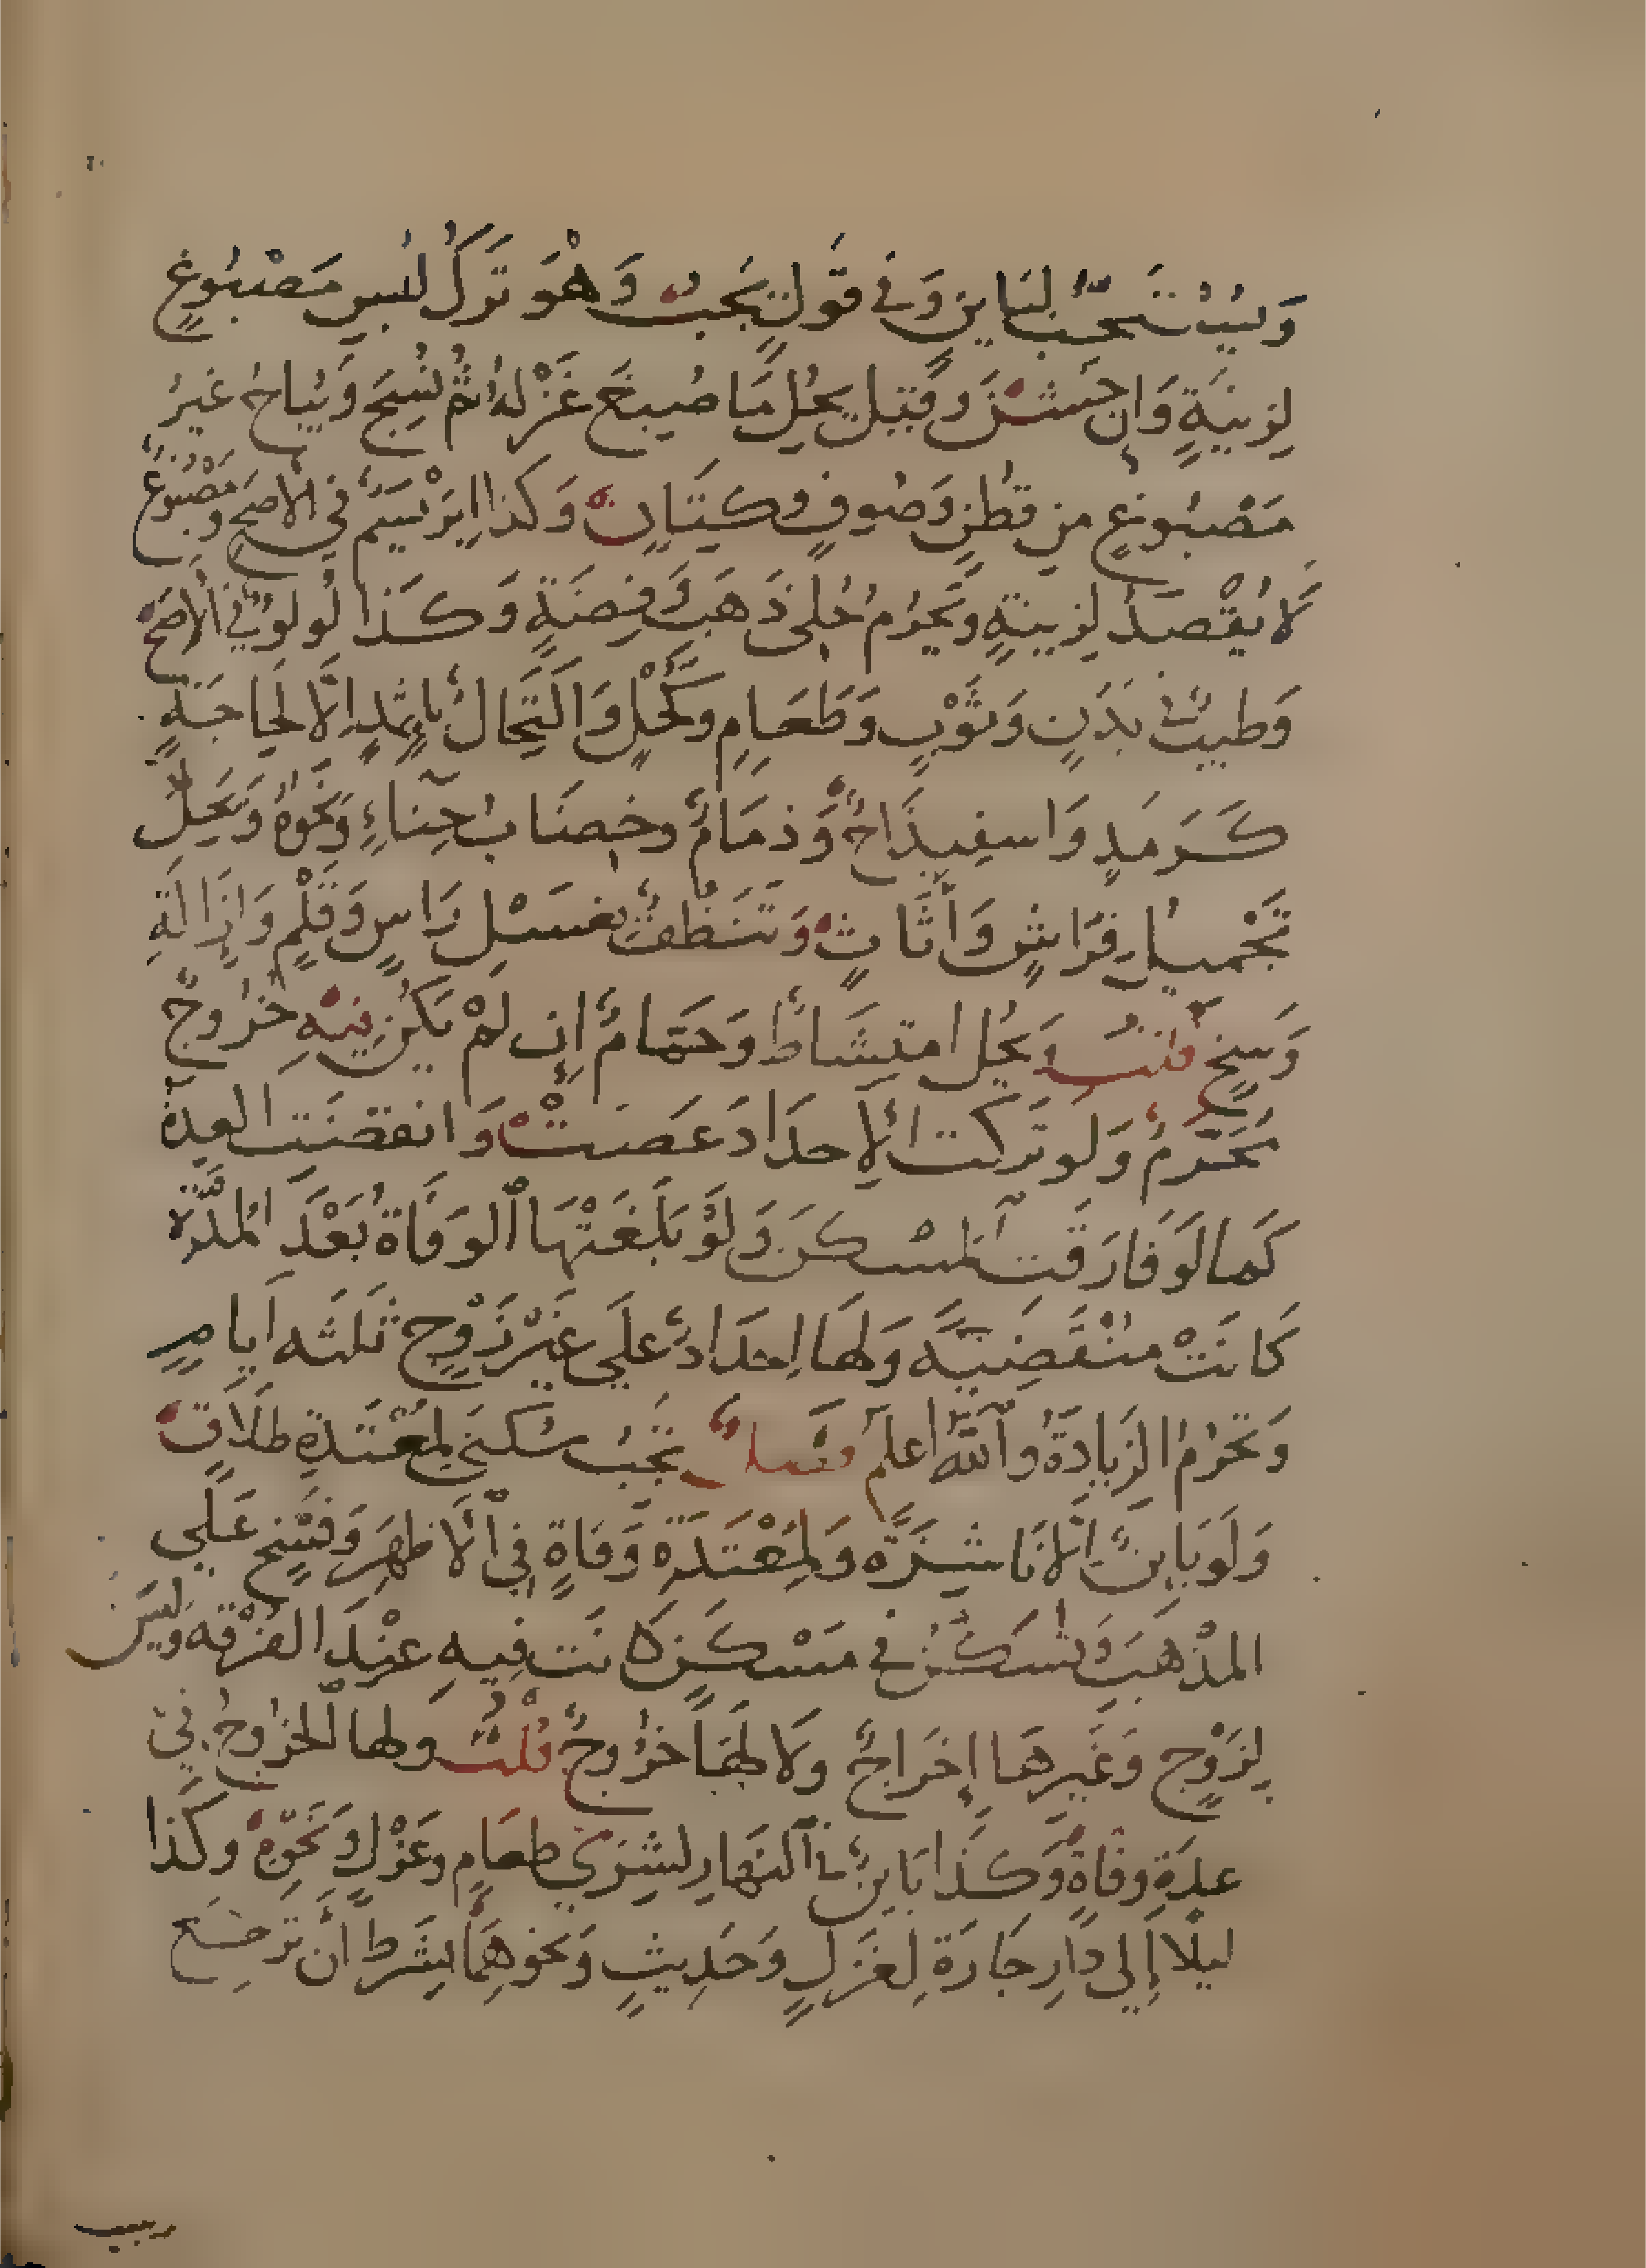 وَيُسْتَحَبُّ لبَاينٍ وَفي قَولٍ يَجبُ وَهْوَ تَركُ لُبسِ مَصْبُوغٍ
لِزينَةٍ وَانِ خَشُنَ وقيل يحُل مَا صُبِغَ غَزْلهُ ثُم نُسِجَ وَيُباحُ غيرُ
مَصْبُوغٍ من قُطنٍ وَصُوفٍ وكتَانٍ وَكَذا اِبرَيْسَمٌ في الأصَحِ ومَصْبُوغٌ
لَا يُقْصَدُ لِزينةٍ وَيَحرُم حُلي ذَهَبٍ وَفِضَةٍ وَكَذا لُولوٌ في الأصَحْ
وَطيبٌ في بَدَنٍ وَثَوْبٍ وَطَعَامٍ وكُحْلٍ وَاكتِحَالٌ بإثمدٍ اِلَّا لحَاجَةٍ
كَرَمَدٍ وَاسفِيذَاجٌ وَذمَامٌ وخِضَابُ حِنّاءٍ وَنَحْوهُ وَيَحِلُّ
تَجْميلُ فِرَاشٍ وَأثَاثٍ وَتَنَظُّفٌ بغسْلِ رَاسٍ وَقَلْمٍ وَازَالَةِ
وَسخٍ قلتُ وَيحُل امتِشَاطٌ وَحَمّامٌ اِن لَمْ يَكُن فِيهِ خُرُوجٌ
مُحَرّمٌ وَلَو تَركت الإحدَادَ عَصَتْ وَانقضَت العدة
كَما لَو فَارَقَت المسْكَنَ وَلَوْ بَلَغَتْهَا الوَفَاةُ بَعْدَ المدّة
كَانَتْ مُنْقَضِيَةً وَلهَا إحدَادٌ علَي غَيْر زَوْجٍ ثلثه اَيامٍ
وَتحرُمُ الزِيَادَةُ وَاللهُ اعلم فصلٌ تَجبُ سُكنَي لِمُعْتَدةِ طلَاقٍ
وَلَو بَاينٌ اِلَّا نَاشِزَةٌ وَلمُعْتَدَةِ وَفاةٍ فِي الأظهَرِ وَفَسْخٍ عَلَي
المذْهَبِ وَتَسكُنُ في مَسْكَنٍ كانَت فِيهِ عنْدَ الفُرْقه وَليسَ
لِزَوْجٍ وَغَيرِهَا إخرَاجٌ ولَا لهَا خُرُوجٌ قُلتُ ولها الخرُوجُ في
عدَةِ وفَاةٍ وَكَذا بَاينٌ في النهَارِ لشِرَي طعَامٍ وغَزْلٍ وَنَحْوِه وكَذا
ليلًا إلي دَارِ جَارَة لِغَزلٍ وَحَديثٍ وَنحوهِمَا بِشَرطِ أن تَرجِعَ